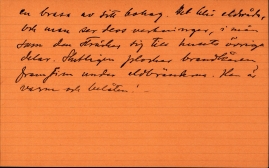 en brasa av sitt bohag. Det blir eldsvåda,
och man ser dess verkningar, i mån
som den sträcker sig till husets övriga
delar. Slutligen plockar brandkåren
fram fim under eldbränderna. Han är
varm och belåten!